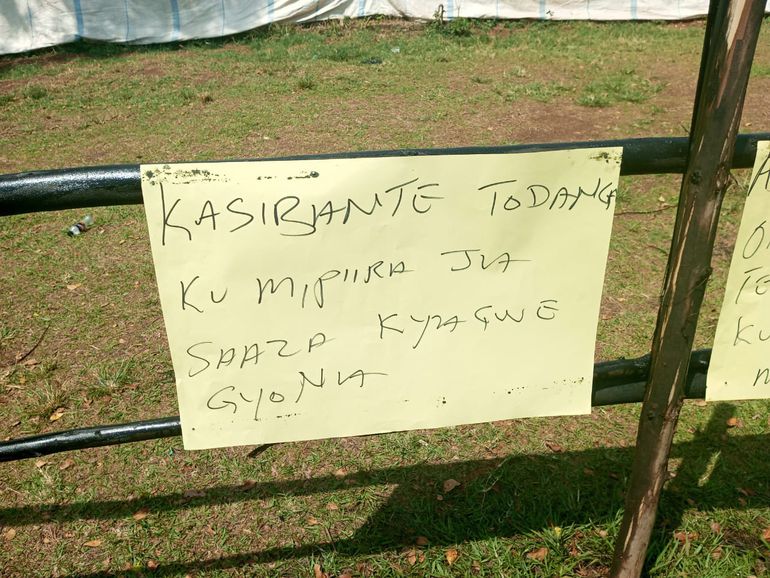 KASIBANTE TODANGA
KU MIPIIRA JYA
SAAZA KYAGWE
GYONNA